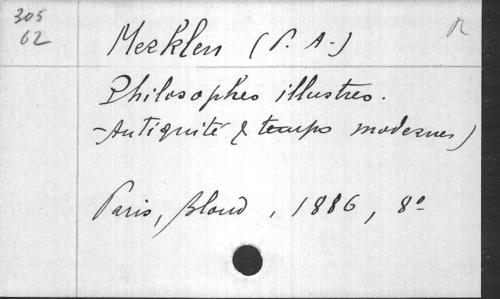 305
62
R
Merklen (P. A.)
Philosophes illustres.
-Antiquité & temps modernes)
Paris, Bloud, 1886, 8º